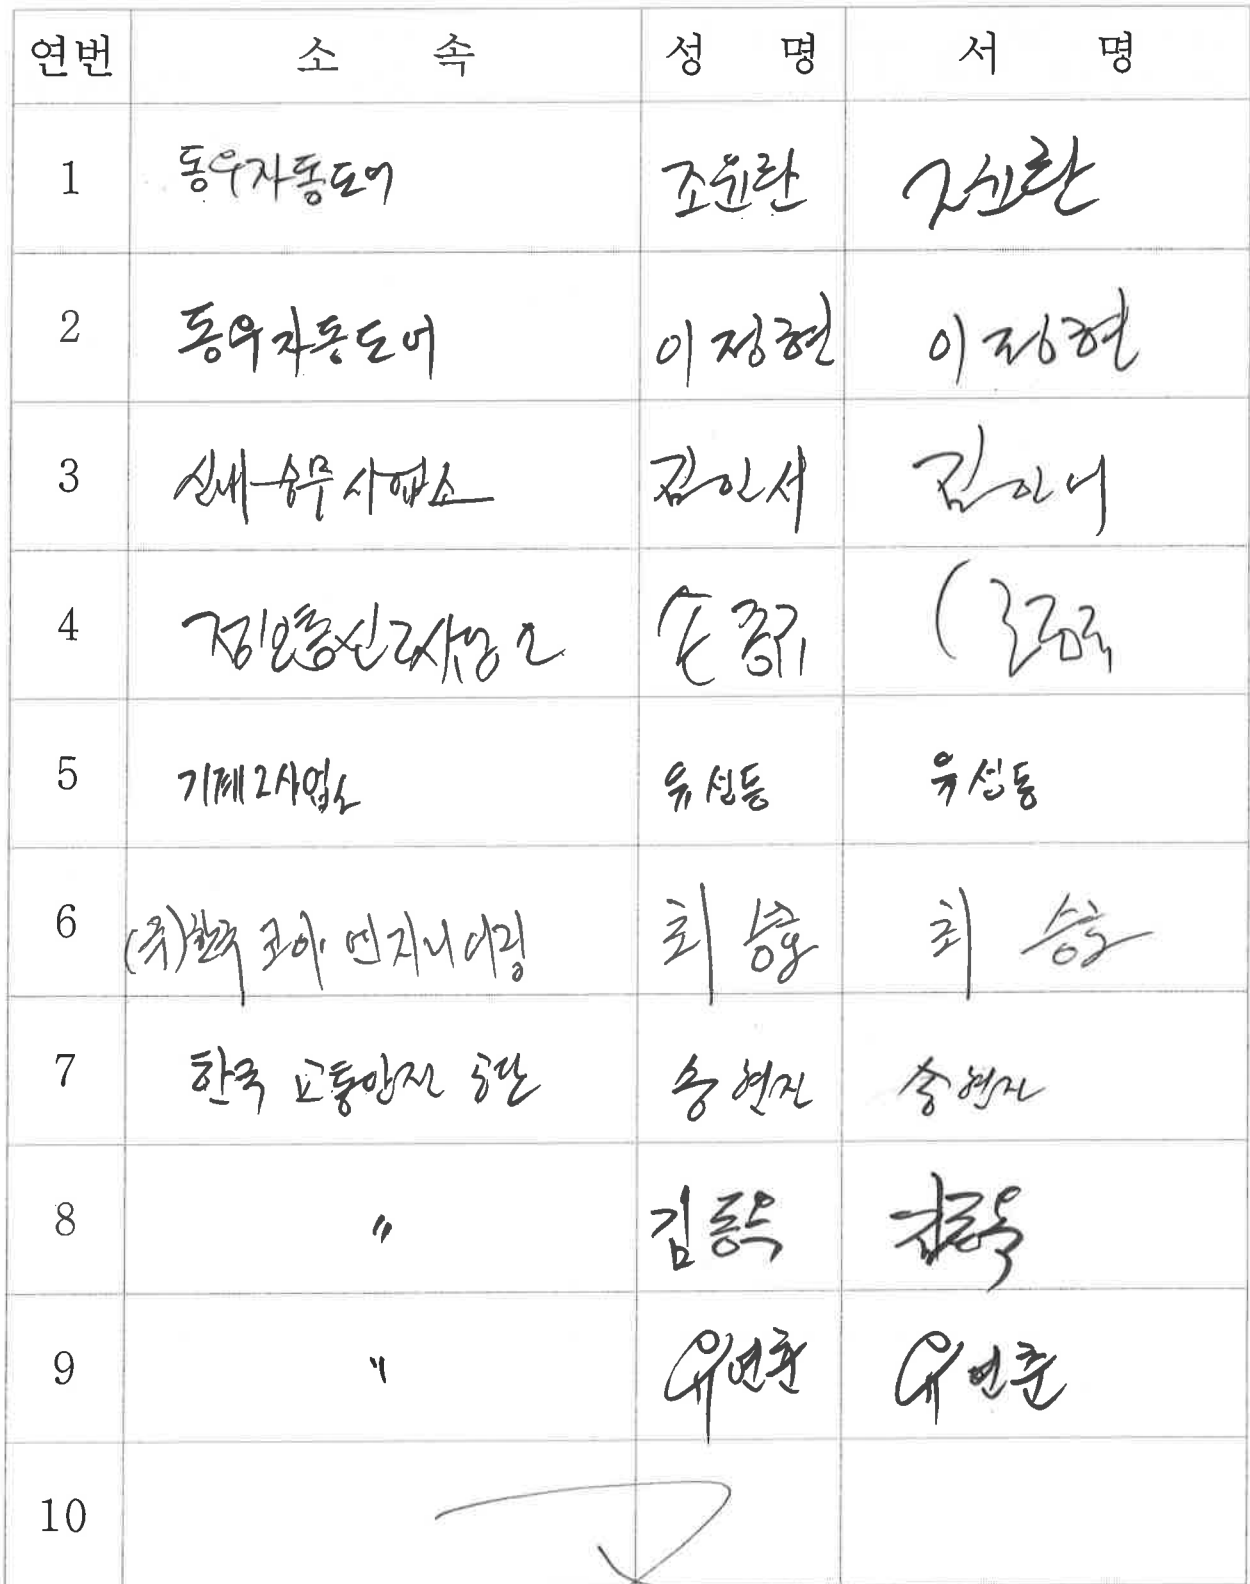 연번 소 속 성 명 서 명
1 동우자동도어 조윤란 조윤란
2 동우자동도어 이정현 이정현
3 신내승무사업소 김인서 김인서
4 손종기
5 기계2사업소 유선동 유선동
6 (주)한국코아엔지니어링 최 승호 최 승호
7 한국교통안전공단 송현진 송현진
8 〃 김동욱 김동욱
9 〃 유연준 유연준
10